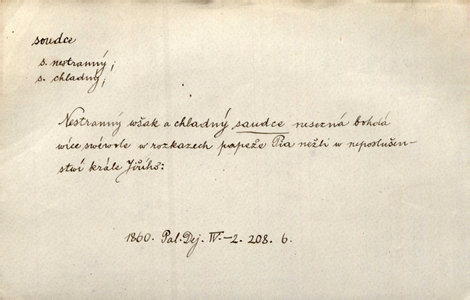 soudce
s. nestranný;
s. chladný;
Nestranný wšak a chladný saudce neuzná bohdá
wíce swéwole w rozkazech papeže Pia nežli w neposlušen-
stwí krále Jiřího:
1860. Pal. Dej. IV.-2. 208. 6.